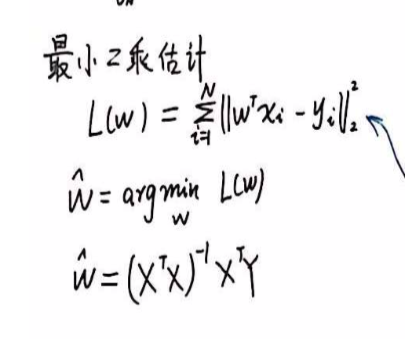 最小2乘估计
L(w) = ∑_{i=1}^{N} ||wᵀxᵢ - yᵢ||₂²
ŵ = argmin_w L(w)
ŵ = (XᵀX)⁻¹XᵀY